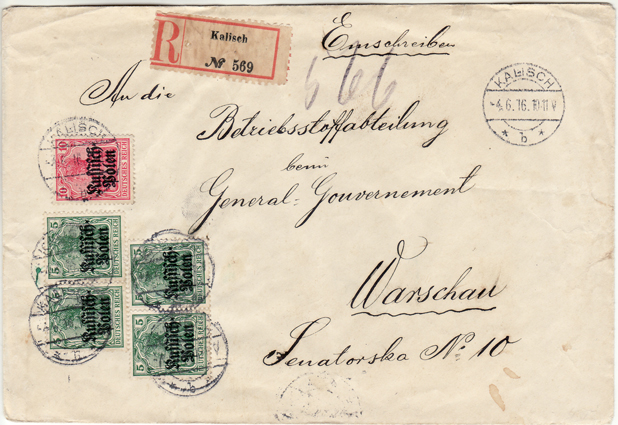 R
Kalisch
№ 569
Einschreiben
666
KALISCH
-4.6.16.10-11V
* b *
An die
Betriebsstoffabteilung
beim
General-Gouvernement
Warschau
Senatorska No. 10
KALISCH
10 10
DEUTSCHES REICH
Russisch-
Polen
5 5
DEUTSCHES REICH
Russisch-
Polen
5 5
DEUTSCHES REICH
Russisch-
Polen
5 5
DEUTSCHES REICH
Russisch-
Polen
5 5
DEUTSCHES REICH
Russisch-
Polen
* b *